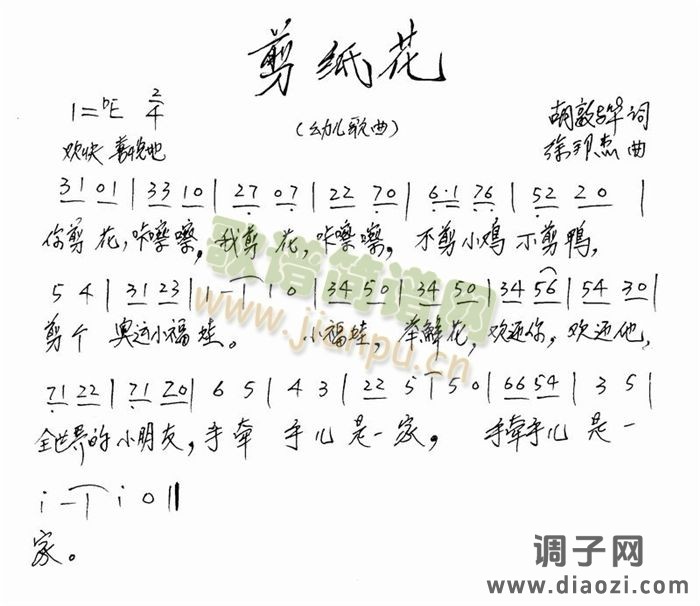 剪纸花
1=ᵇE 2/4
(幼儿歌曲)
胡敦骅 词
欢快 喜悦地
徐邦杰 曲
3 1 0 1 | 3 3 1 0 | 2 7 0 7 | 2 2 7 0 | 6·1 7 6 | 5 2 2 0 |
你剪 花,咔嚓嚓,我剪 花,咔嚓嚓,不剪小鸡 不剪鸭,
5 4 | 3 1 2 3 | i - | i 0 | 3 4 5 0 | 3 4 5 0 | 3 4 5 6 | 5 4 3 0 |
剪个 奥运小福娃。 小福娃,举鲜花,欢迎你,欢迎他,
7 1 2 2 | 7 1 2 0 | 6 5 | 4 3 | 2 2 5 | 5 0 | 6 6 5 4 | 3 5 |
全世界的小朋友,手牵 手儿是一家, 手牵手儿 是一
i - | i 0 ‖
家。
歌谱简谱网
www.jianpu.cn
调子网
www.diaozi.com